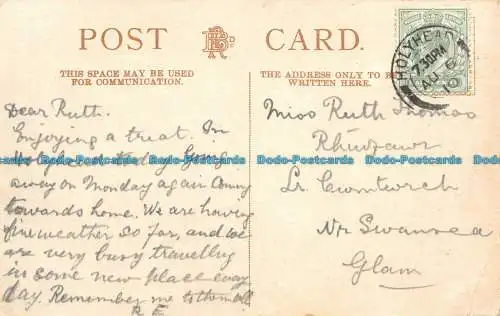 POST CARD.
THIS SPACE MAY BE USED
FOR COMMUNICATION.
THE ADDRESS ONLY TO BE
WRITTEN HERE.
HOLYHEAD
7.30PM
AU 6
10
Dear Ruth.
Enjoying a treat. In
Holyhead today Going
away on Monday again Coming
towards home. We are having
fine weather so far, and we
are very busy travelling
in some new place every
day. Remember me to them all
R E
Miss Ruth Thomas
Lr Cwmtwrch
Nr Swansea
Glam
Dodo-Postcards.com Dodo-Postcards.com Dodo-Postcards.com Dodo-Postcards.com